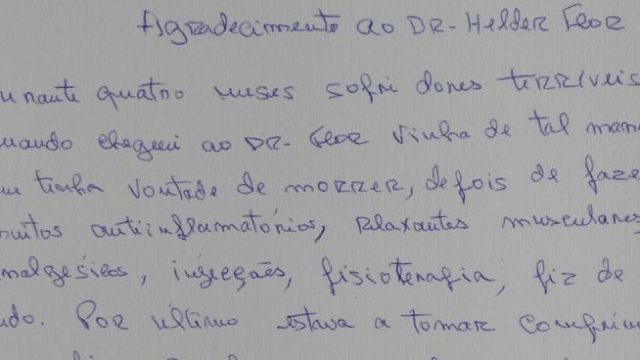 Agradecimento ao DR. Helder Flor
urante quatro meses sofri dores terríveis
uando cheguei ao DR. Flor vinha de tal man
tinha vontade de morrer, depois de faze
uitos antiinflamatórios, relaxantes musculares
nalgésicos, injeções, fisioterapia, fiz de
udo. Por último estava a tomar comprim